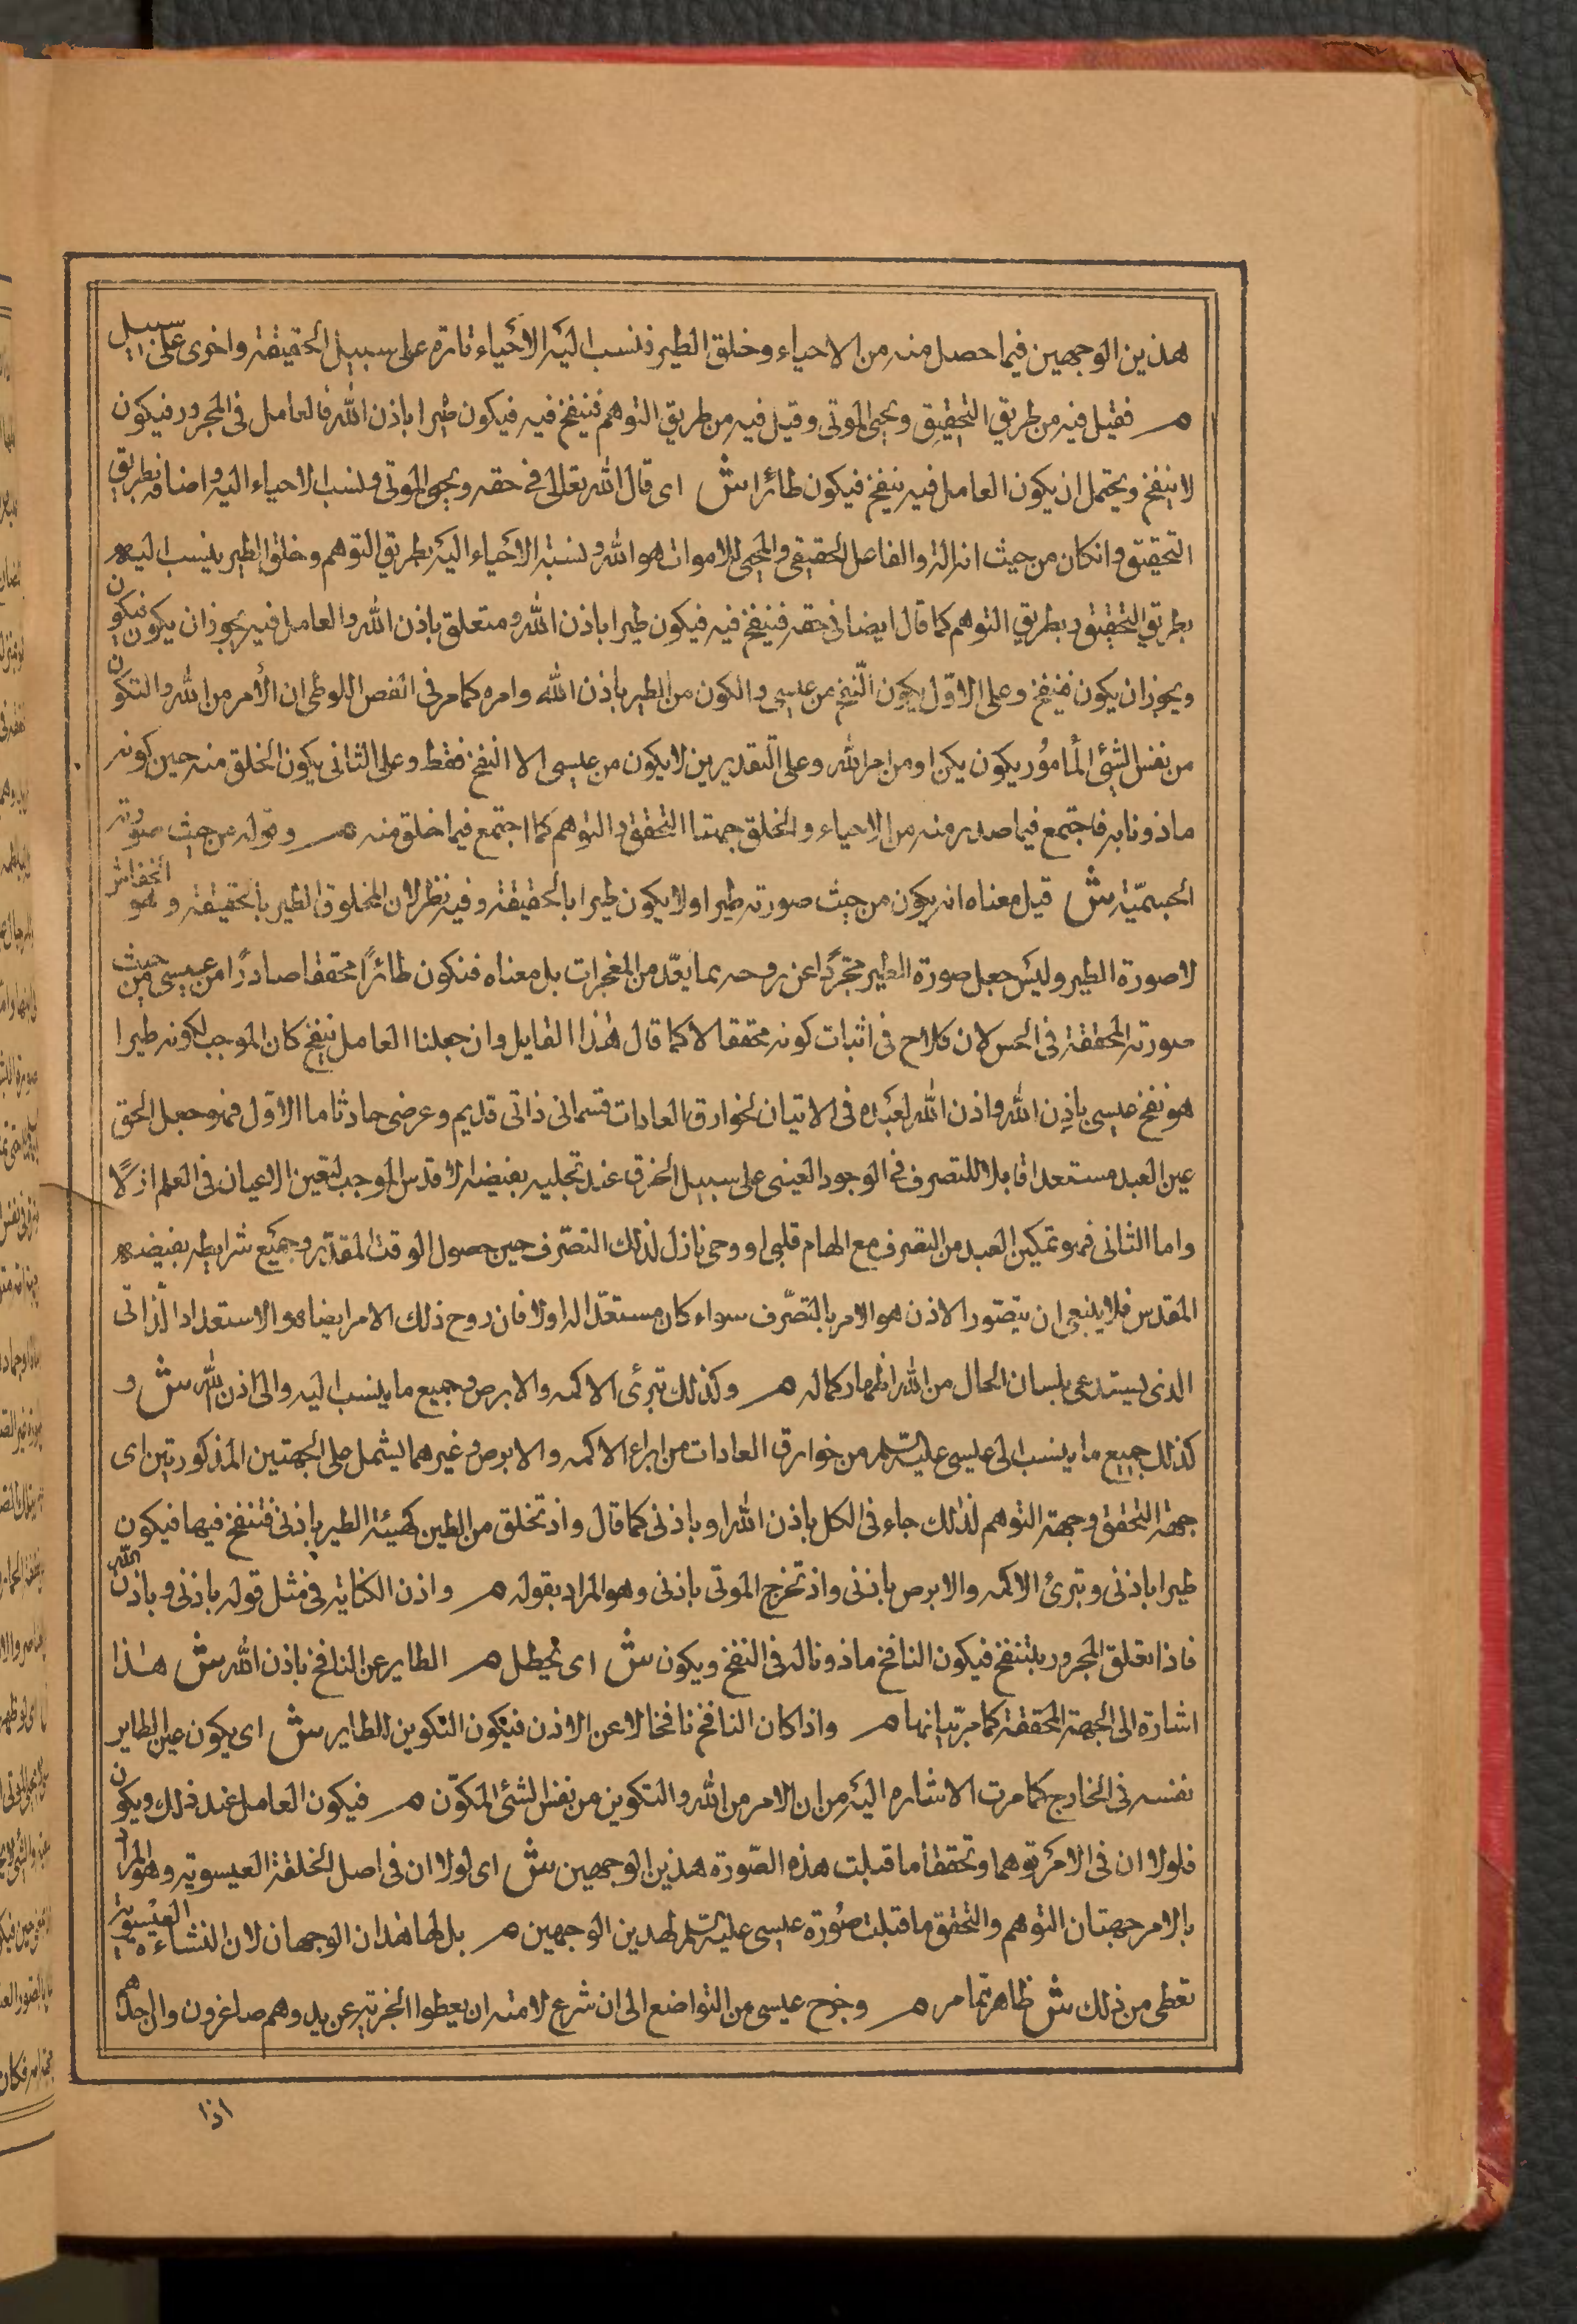 هذين الوجهين فيما حصل منه من الاحياء وخلق الطير فنسب اليه الاحياء تارة على سبيل الحقيقة واخرى على سبيل
م فقيل فيه من طريق التحقيق ويحيى الموتى وقيل فيه من طريق التوهم فينفخ فيه فيكون طيرا باذن الله فالعامل فى المجرور فيكون
لا ينفخ ويحتمل ان يكون العامل فيه ينفخ فيكون طائرا ش اى قال الله تعالى فى حقه ويحيى الموتى ونسب الاحياء اليه واضافه بطريق
التحقيق وانكان من حيث انه الة والفاعل الحقيقى والمحيى للاموات هو الله ونسبة الاحياء اليه بطريق التوهم وخلق الطير ينسب اليه
بطريق التحقيق وبطريق التوهم كما قال ايضا فى حقه فينفخ فيه فيكون طيرا باذن الله ومتعلق باذن الله والعامل فيه يجوز ان يكون فيكون
ويجوز ان يكون فينفخ وعلى الاول يكون النفخ من عيسى والكون من الطير باذن الله وامره كما مر فى الفص اللوطى ان الأمر من الله والتكون
من نفس الشئ المأمور يكون يكن او من امر الله وعلى التقديرين لا يكون من عيسى الا النفخ فقط وعلى الثانى يكون الخلق منه حين كونه
ماذونا به فاجتمع فيما صدر منه من الاحياء والخلق جهتا التحقق والتوهم كما اجتمع فيما خلق منه م وقوله من حيث صورته
الجسمية ش قيل معناه انه يكون من حيث صورته طيرا ولا يكون طيرا بالحقيقة وفيه نظر لان المخلوق الطير بالحقيقة وهو الخفاش
لا صورة الطير وليس جعل صورة الطير مجردا عن روحه بما يعد من المعجزات بل معناه فتكون طائرا محققا صادرا من عيسى من حيث
صورته المحققة فى الحس لان كلامه فى اثبات كونه محققا لا كما قال هذا القايل وان جعلنا العامل ينفخ كان الموجب لكونه طيرا
هو نفخ عيسى باذن الله واذن الله لعبده فى الاتيان لخوارق العادات قسمانى ذاتى قديم وعرضى حادث اما الاول فهو جعل الحق
عين العبد مستعدا قابلا للتصرف فى الوجود العينى على سبيل الخرق عند تجليه بفيضه الاقدس الموجب لتعين الاعيان فى العلم ازلا
واما الثانى فهو تمكين العبد من التصرف مع الهام قلبى او وحى نازل لذلك التصرف حين حصول الوقت المقدر وجميع شرايطه بفيضه
المقدس فلا ينبغى ان يتصور الاذن هو الامر بالتصرف سواء كان مستعدا له اولا فان روح ذلك الامر ايضا هو الاستعداد الذاتى
الذى يستدعى بلسان الحال من الله اظهار كماله م وكذلك تبرئ الاكمه والابرص وجميع ما ينسب اليه والى اذن الله ش و
كذلك جميع ما ينسب الى عيسى عليه السلم من خوارق العادات من ابراء الاكمه والابرص وغيرهما يشمل على الجهتين المذكورتين اى
جهة التحقق وجهة التوهم لذلك جاء فى الكل باذن الله او باذنى كما قال واذ تخلق من الطين كهيئة الطير باذنى فتنفخ فيها فيكون
طيرا باذنى وتبرئ الاكمه والابرص باذنى واذ تخرج الموتى باذنى وهو المراد بقوله م واذن الكناية فى مثل قوله باذنى وباذن الله
فاذا تعلق المجرور بتنفخ فيكون النافخ ماذونا له فى النفخ ويكون ش اى يحصل م الطاير عن النافخ باذن الله ش هذا
اشارة الى الجهة المحققة كما مر بيانها م واذا كان النافخ نافخا لا عن الاذن فيكون التكوين للطاير ش اى يكون عين الطاير
نفسه فى الخارج كما مرت الاشارة اليه من ان الامر من الله والتكوين من نفس الشئ المكون م فيكون العامل عند ذلك ويكون
فلولا ان فى الامر توهما وتحققا ما قبلت هذه الصورة هذين الوجهين ش اى لولا ان فى اصل الخلقة العيسوية وهو المراد
بالامر جهتان التوهم والتحقق ما قبلت صورة عيسى عليه السلم لهذين الوجهين م بل لها هذان الوجهان لان النشاءة العيسوية
تعطى من ذلك ش ظاهر مما مر م وخرج عيسى من التواضع الى ان شرع لامته ان يعطوا الجزية عن يد وهم صاغرون وان احدهم
اذا